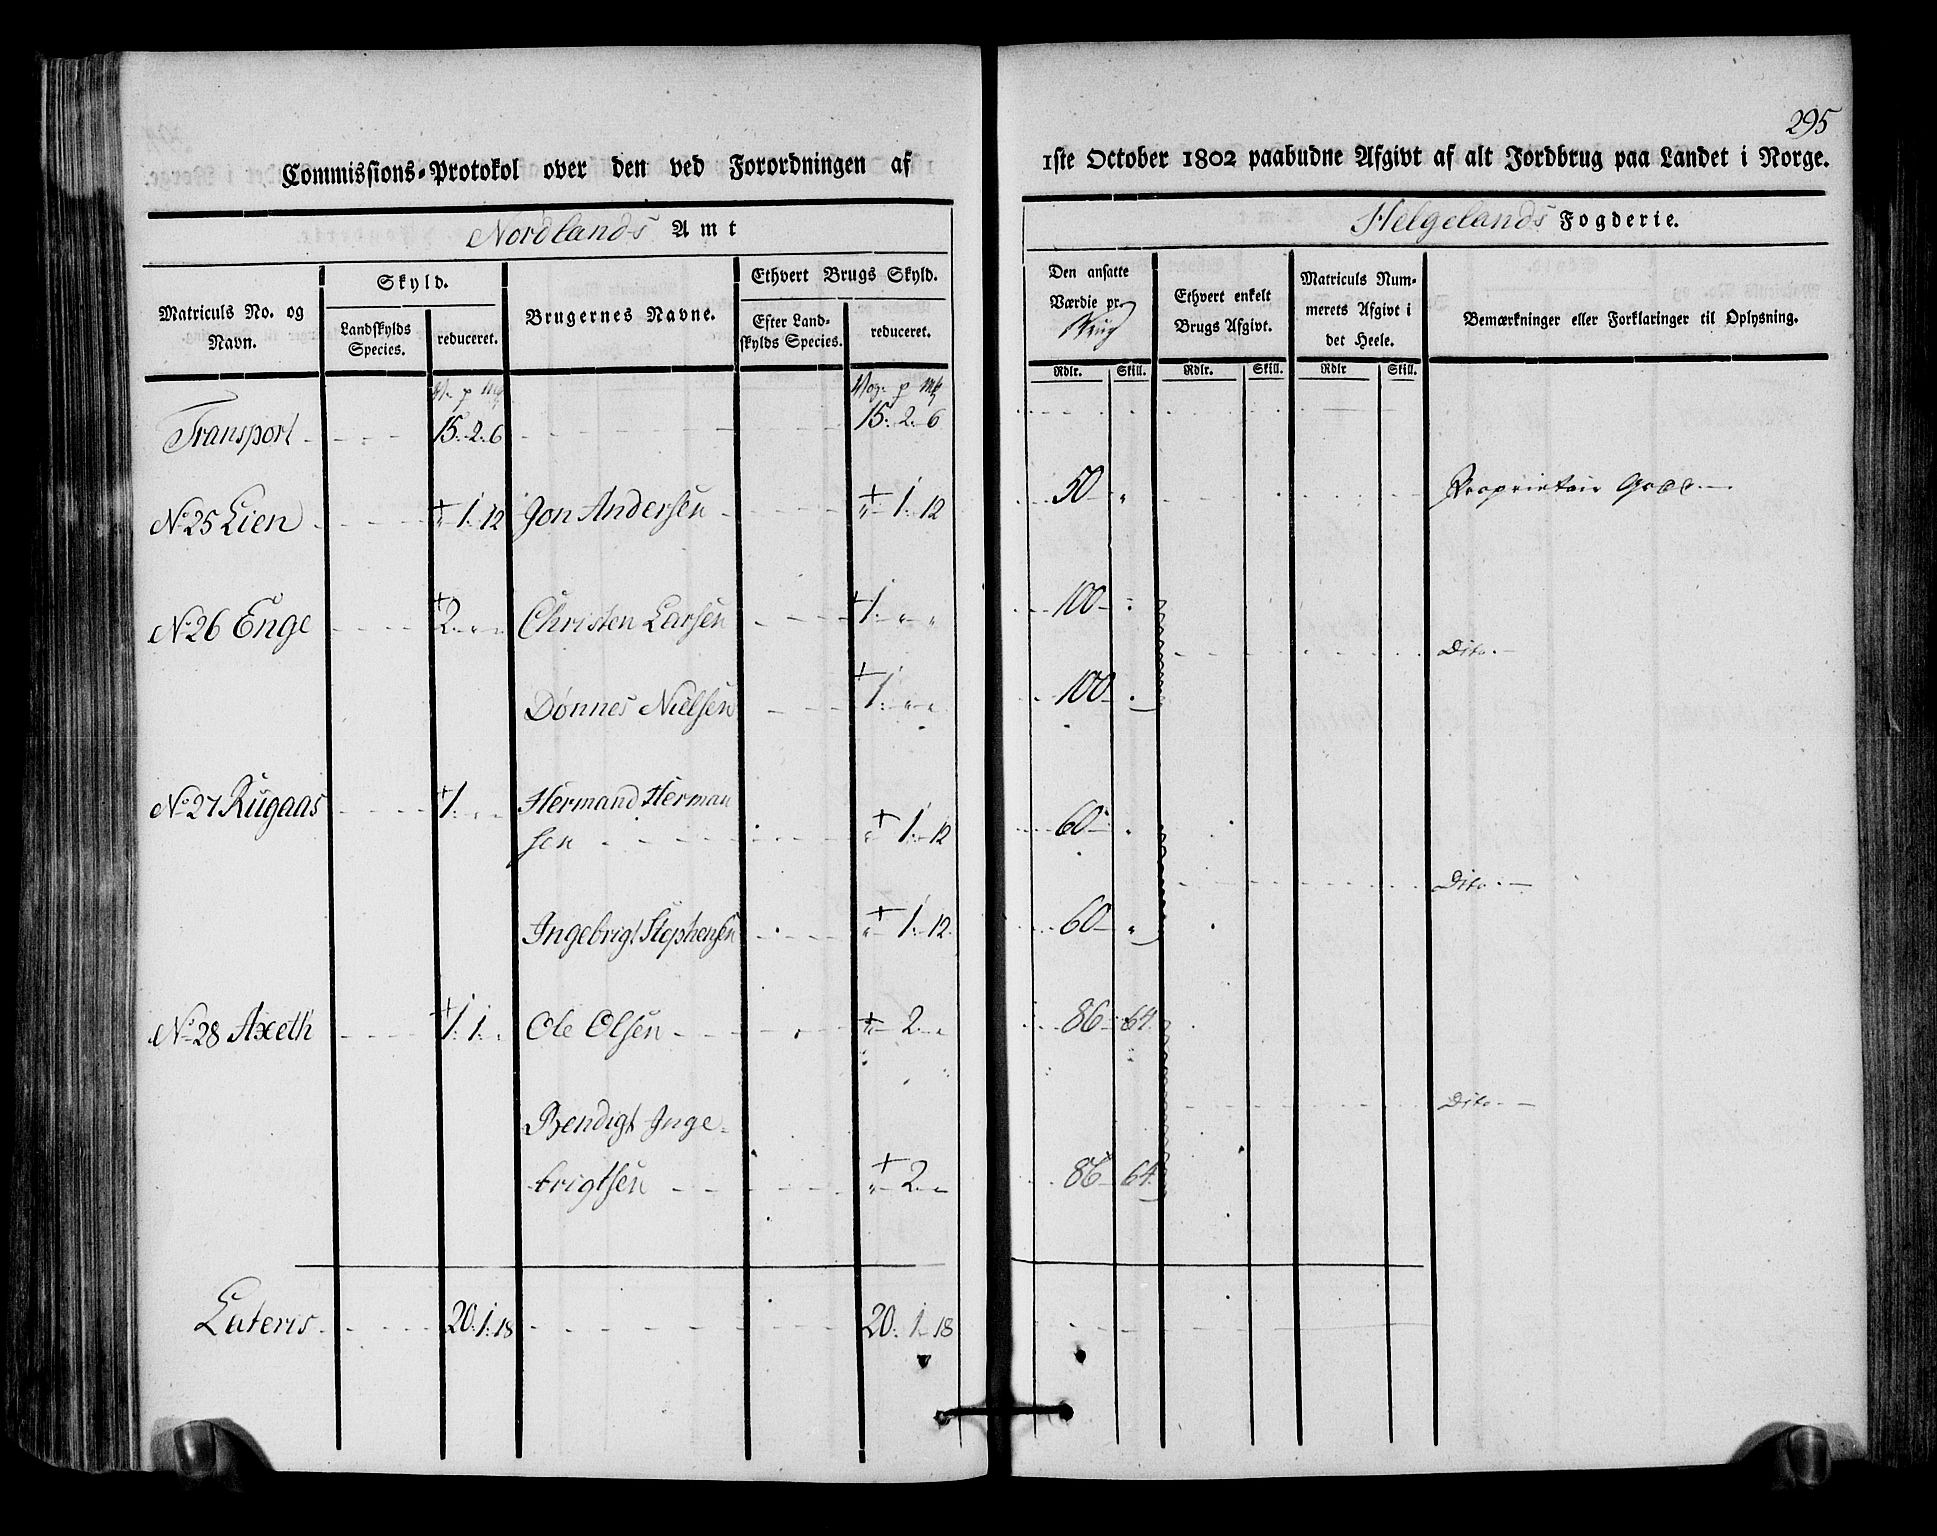 295
Commissions-Protokol over den ved Forordningen af 1ste October 1802 paabudne Afgivt af alt Jordbrug paa Landet i Norge.
Nordlands Amt
Helgelands Fogderie.
Matriculs No. og Navn.
Skyld.
Landskylds Species.
reduceret.
Brugernes Navne.
Ethvert Brugs Skyld.
Efter Landskylds Species.
reduceret.
Den ansatte Værdie pr. Brug
Ethvert enkelt Brugs Afgivt.
Matriculs Nummerets Afgivt i det Heele.
Bemærkninger eller Forklaringer til Oplysning.
Rdlr. Skill. Rdlr. Skill. Rdlr Skill.
Vog. p mk
Transport 15. 2. 6 15. 2. 6
No 25 Lien + „ 1. 12 Jon Andersen + „ 1. 12 50 „ Proprietair
No 26 Enge + 2. „ „ Christen Larsen + 1. „ „ 100 „
Dito.
Dønnes Nielsen + 1. „ „ 100 „
No 27 Rugaas + 1. „ „ Hermand Herman
sen + „ 1. 12 60 „
Dito.
Ingebrigt Stephensen + „ 1. 12 60 „
No 28 Axeth + 1. 1. „ Ole Olsen + „ 2. „ 86 64.
Bendigt Inge-
Dito.
brigtsen + „ 2. „ 86 64.
Lateris 20. 1. 18 20. 1. 18